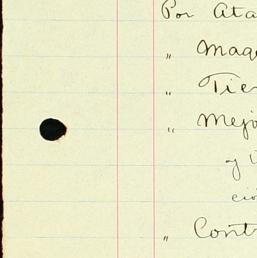 Por Ata
" Maqu
" Tier
" Mejo
y
" Cont